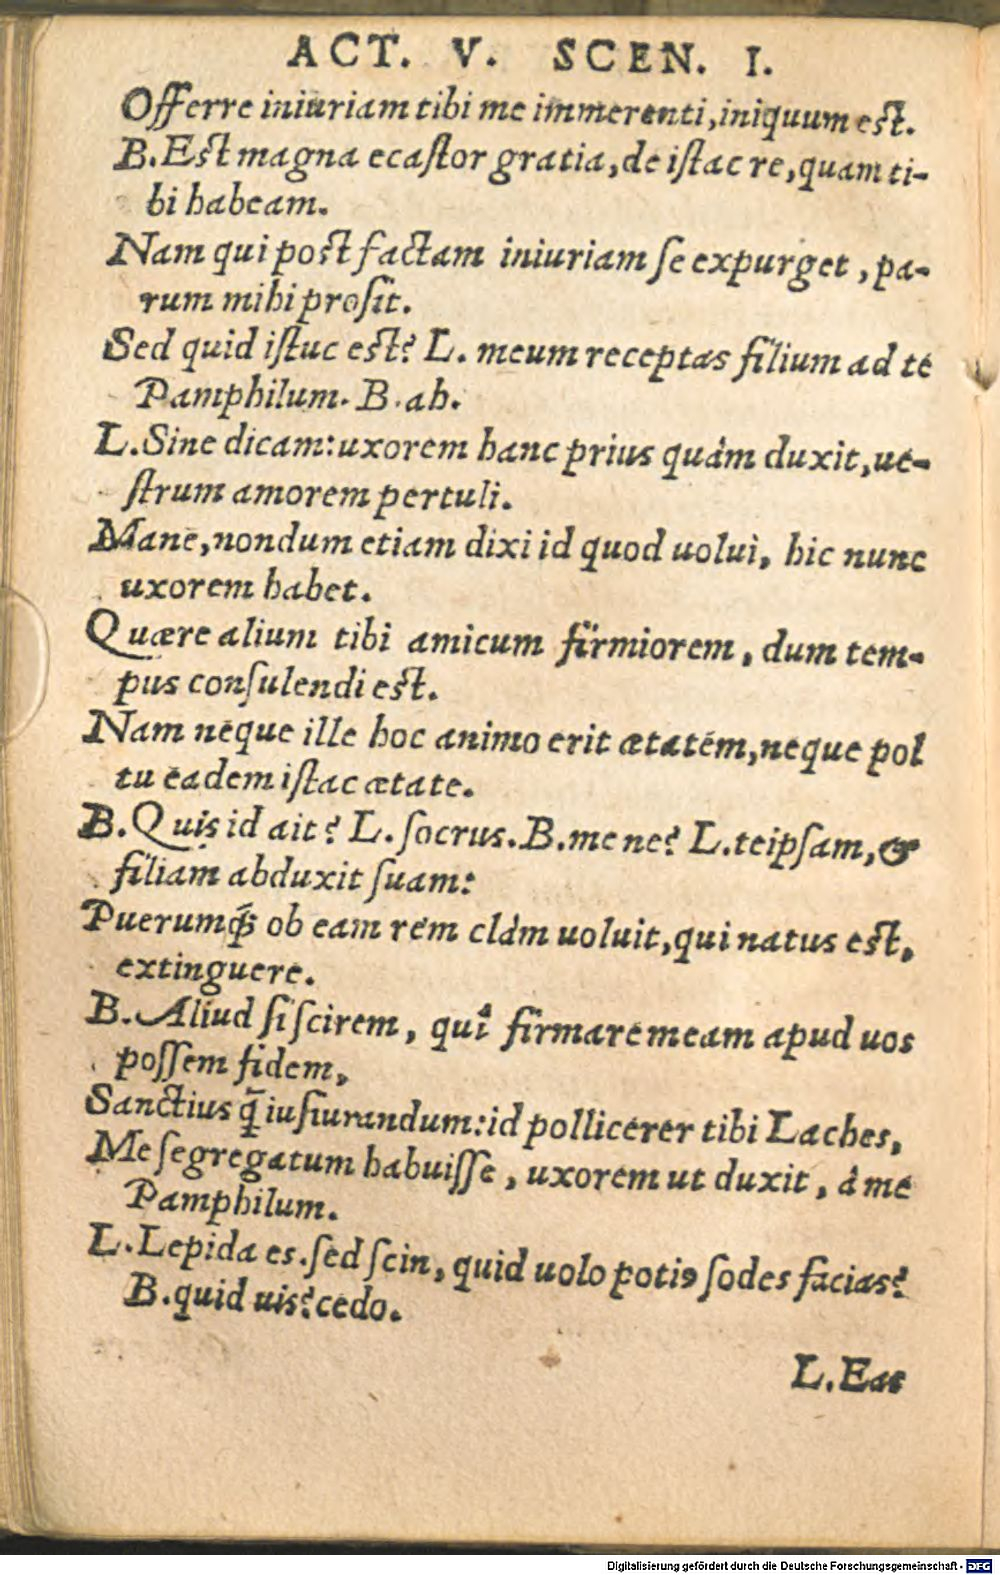 ACT. V. SCEN. I.
Offerre iniuriam tibi me immerenti, iniquum est.
B. Est magna ecastor gratia, de istac re, quam ti-
bi habeam.
Nam qui post factam iniuriam se expurget, pa-
rum mihi prosit.
Sed quid istuc est? L. meum receptas filium ad te
Pamphilum. B. ah.
L. Sine dicam: uxorem hanc prius quàm duxit, ue-
strum amorem pertuli.
Mane, nondum etiam dixi id quod uolui, hic nunc
uxorem habet.
Quære alium tibi amicum firmiorem, dum tem-
pus consulendi est.
Nam neque ille hoc animo erit ætatem, neque pol
tu eadem istac ætate.
B. Quis id ait? L. socrus. B. me ne? L. teipsam, &
filiam abduxit suam:
Puerumq́; ob eam rem clàm uoluit, qui natus est,
extinguere.
B. Aliud si scirem, quî firmare meam apud uos
possem fidem,
Sanctius q̃ iusiurandum: id pollicerer tibi Laches,
Me segregatum habuisse, uxorem ut duxit, à me
Pamphilum.
L. Lepida es. sed scin, quid uolo potiꝰ sodes facias?
B. quid uis? cedo.
L. Eas
Digitalisierung gefördert durch die Deutsche Forschungsgemeinschaft - DFG